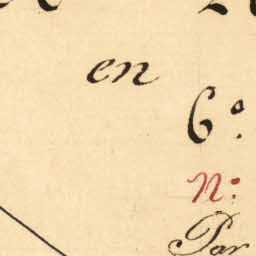 en
6º.
n:
Par